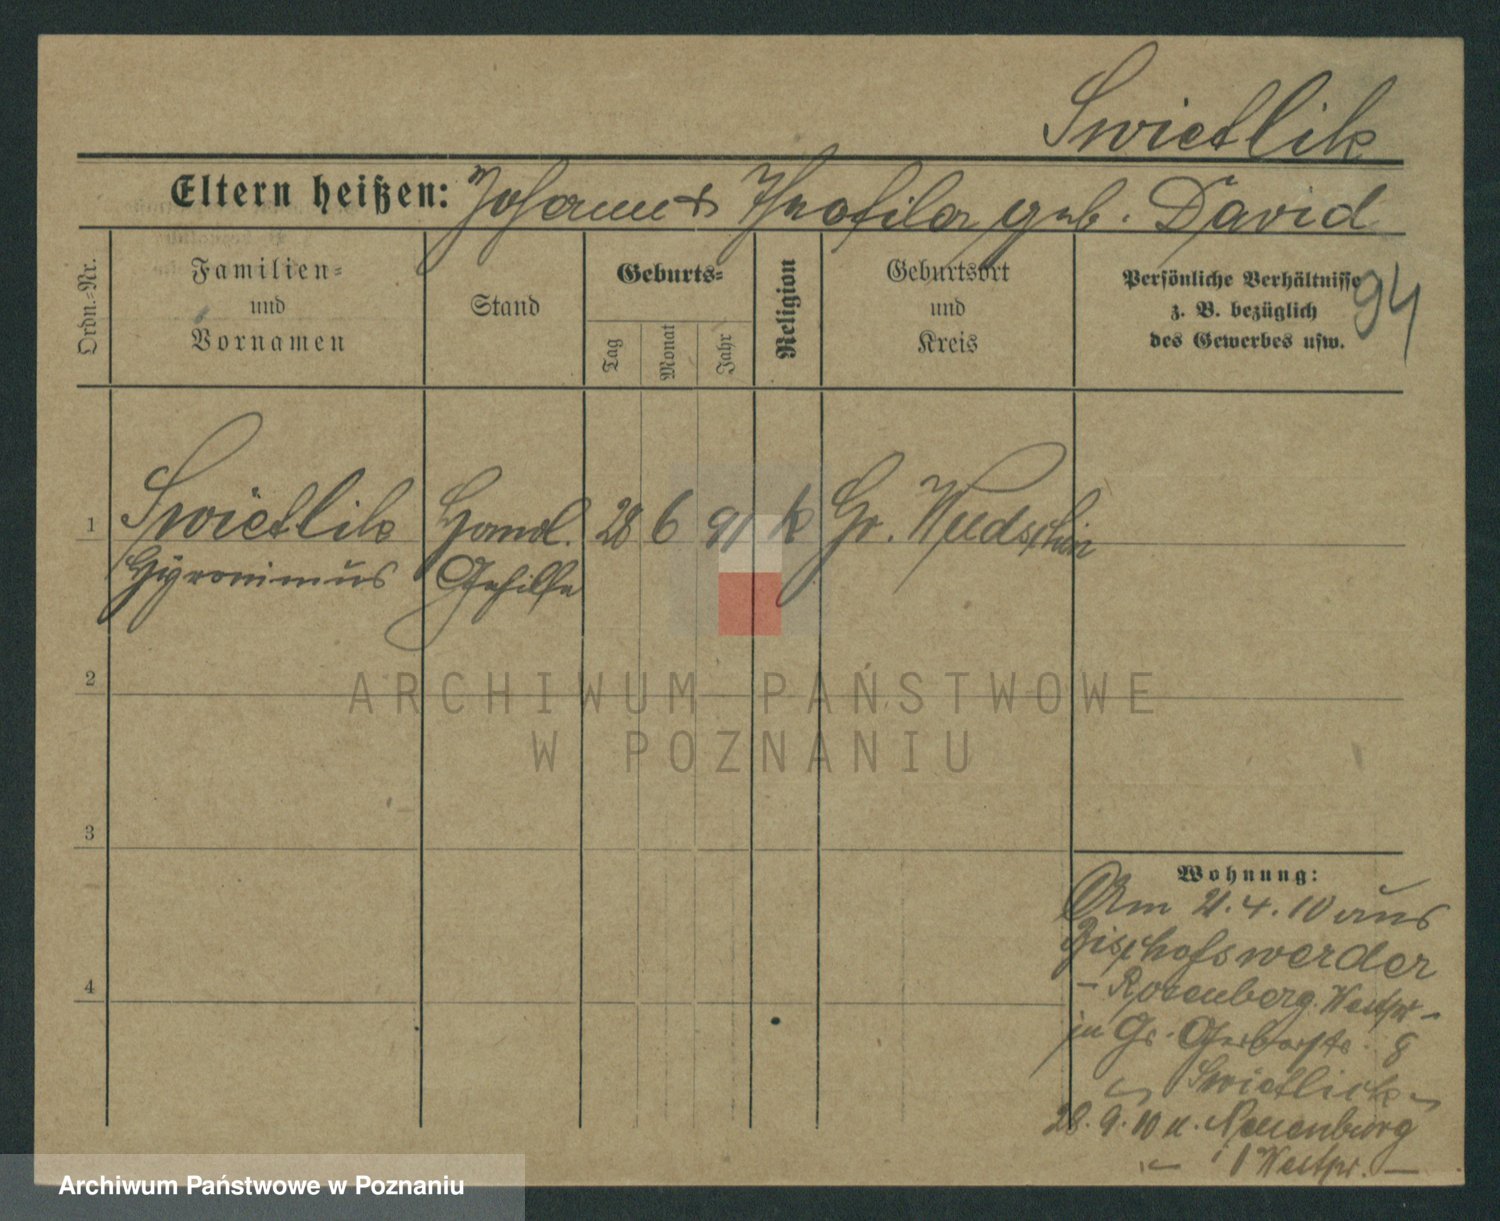 Swietlik
Eltern heißen: Johann & Theofila geb. David
Ordn.=Nr.
Familien=
und
Vornamen
Stand
Geburts=
Tag
Monat
Jahr
Religion
Geburtsort
und
Kreis
Persönliche Verhältnisse
z. B. bezüglich
des Gewerbes usw.
94
1 Swietlik Handl. 28 6 91 k Gr.
Hyronimus Gehilfe
ARCHIWUM PAŃSTWOWE
W POZNANIU
2
3
4
Wohnung:
Am 21.4.10 aus
Bischofswerder
- Rosenberg Westpr -
in Gr. Gerberstr. 8
Swietlick
28.9.10 n. Neuenburg
Westpr. -
Archiwum Państwowe w Poznaniu